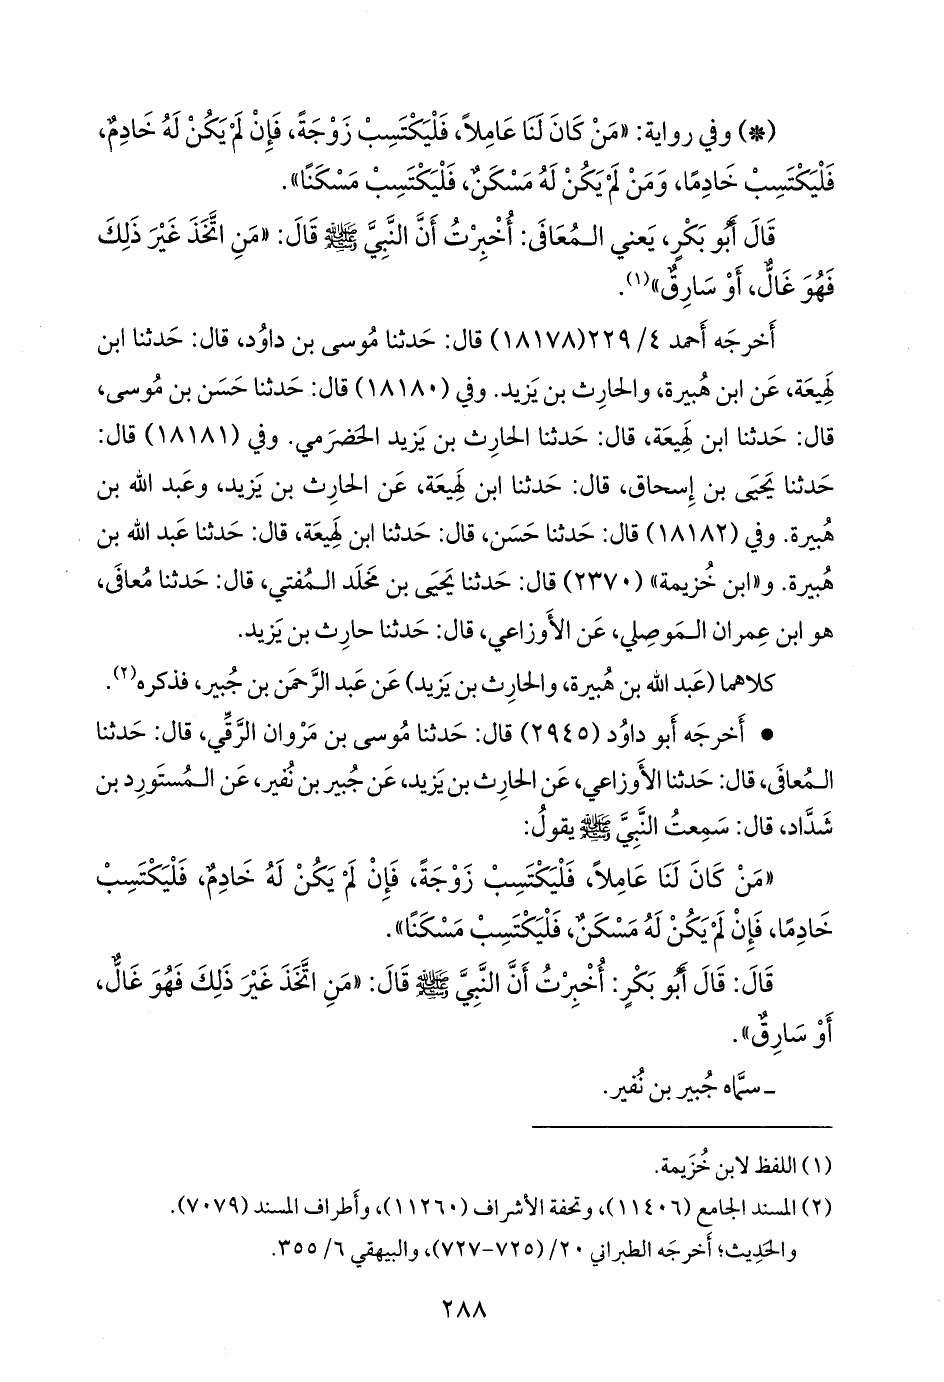 (*) وفي رواية: «مَنْ كَانَ لَنَا عَامِلاً، فَلْيَكْتَسِبْ زَوْجَةً، فَإِنْ لَمْ يَكُنْ لَهُ خَادِمٌ،
فَلْيَكْتَسِبْ خَادِمًا، وَمَنْ لَمْ يَكُنْ لَهُ مَسْكَنٌ، فَلْيَكْتَسِبْ مَسْكَنًا».
قَالَ أَبُو بَكْرٍ، يَعني الـمُعَافَى: أُخْبِرْتُ أَنَّ النَّبِيَّ ﷺ قَالَ: «مَنِ اتَّخَذَ غَيْرَ ذَلِكَ
فَهُوَ غَالٌّ، أَوْ سَارِقٌ»(١).
أَخرجَه أَحمد ٤/ ٢٢٩(١٨١٧٨) قال: حَدثنا مُوسى بن داوُد، قال: حَدثنا ابن
لَهِيعَة، عَن ابن هُبيرة، والحارِث بن يَزيد. وفي (١٨١٨٠) قال: حَدثنا حَسَن بن مُوسى،
قال: حَدثنا ابن لَهِيعَة، قال: حَدثنا الحارِث بن يَزيد الحَضرَمي. وفي (١٨١٨١) قال:
حَدثنا يَحيَى بن إِسحاق، قال: حَدثنا ابن لَهِيعَة، عَن الحارِث بن يَزيد، وعَبد الله بن
هُبيرة. وفي (١٨١٨٢) قال: حَدثنا حَسَن، قال: حَدثنا ابن لَهِيعَة، قال: حَدثنا عَبد الله بن
هُبيرة. و«ابن خُزيمة» (٢٣٧٠) قال: حَدثنا يَحيَى بن مَخلَد الـمُفتي، قال: حَدثنا مُعافَى،
هو ابن عِمران الـمَوصِلي، عَن الأَوزاعي، قال: حَدثنا حارِث بن يَزيد.
كلاهما (عَبد الله بن هُبيرة، والحارِث بن يَزيد) عَن عَبد الرَّحمَن بن جُبير، فذكره(٢).
● أَخرجَه أَبو داوُد (٢٩٤٥) قال: حَدثنا مُوسى بن مَرْوان الرَّقِّي، قال: حَدثنا
الـمُعافَى، قال: حَدثنا الأَوزاعي، عَن الحارِث بن يَزيد، عَن جُبير بن نُفير، عَن الـمُستَورِد بن
شَدَّاد، قال: سَمِعتُ النَّبيَّ ﷺ يقولُ:
«مَنْ كَانَ لَنَا عَامِلاً، فَلْيَكْتَسِبْ زَوْجَةً، فَإِنْ لَمْ يَكُنْ لَهُ خَادِمٌ، فَلْيَكْتَسِبْ
خَادِمًا، فَإِنْ لَمْ يَكُنْ لَهُ مَسْكَنٌ، فَلْيَكْتَسِبْ مَسْكَنًا».
قَالَ: قَالَ أَبُو بَكْرٍ: أُخْبِرْتُ أَنَّ النَّبِيَّ ﷺ قَالَ: «مَنِ اتَّخَذَ غَيْرَ ذَلِكَ فَهُوَ غَالٌّ،
أَوْ سَارِقٌ».
ـ سمَّاه جُبير بن نُفير.
(١) اللفظ لابن خُزَيمة.
(٢) المسند الجامع (١١٤٠٦)، وتحفة الأشراف (١١٢٦٠)، وأطراف المسند (٧٠٧٩).
والحَدِيث؛ أَخرجَه الطبراني ٢٠/ (٧٢٥-٧٢٧)، والبيهقي ٦/ ٣٥٥.
٢٨٨